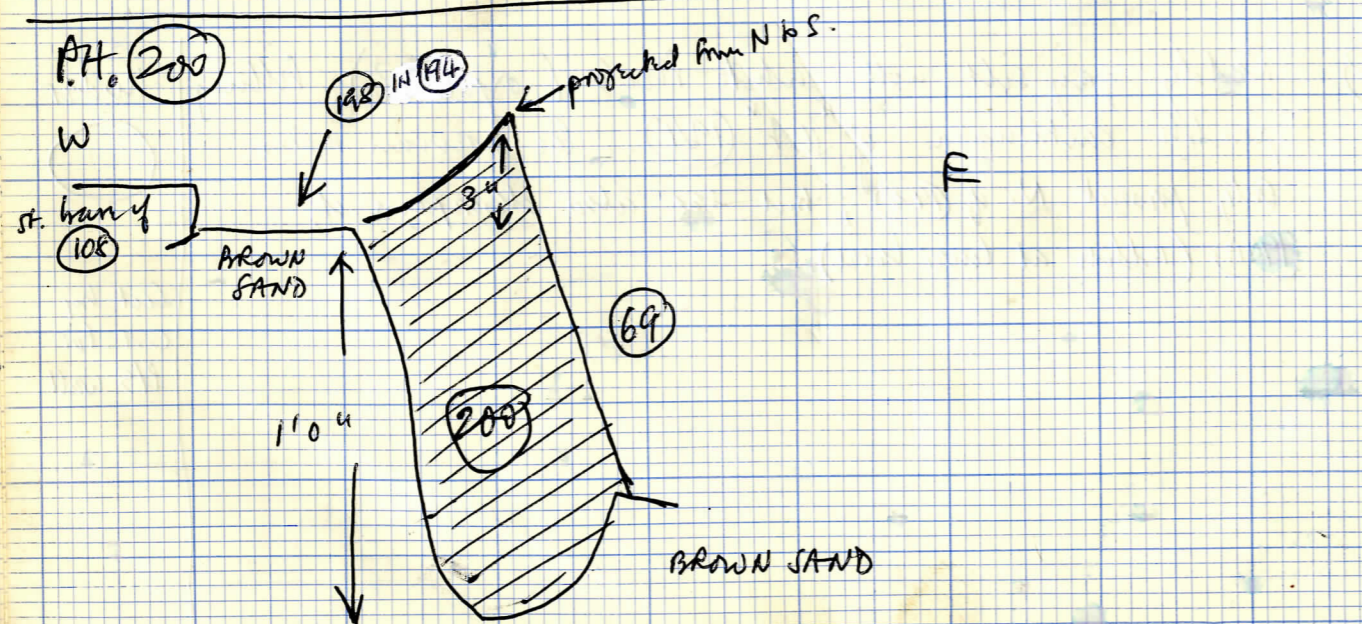 P.H. 200
198 IN 194
projected from N to S.
W
E
3"
st. base of
108
BROWN
SAND
69
200
1'0"
BROWN SAND